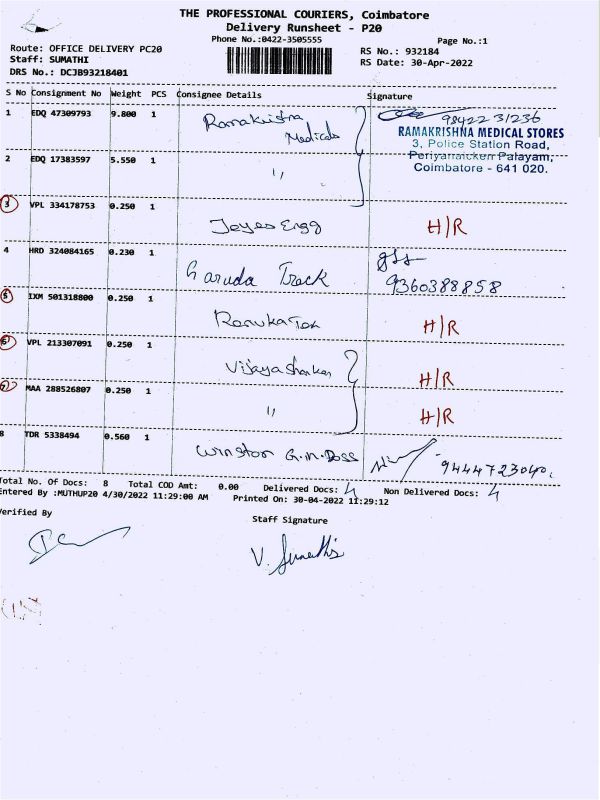 THE PROFESSIONAL COURIERS, Coimbatore
Delivery Runsheet - P20
Phone No.:0422-3505555
Page No.:1
Route: OFFICE DELIVERY PC20
RS No.: 932184
Staff: SUMATHI
RS Date: 30-Apr-2022
DRS No.: DCJB93218401
S No Consignment No Weight PCS Consignee Details Signature
1 EDQ 47309793 9.800 1 Ramakrishna Medicals 98422 31236
RAMAKRISHNA MEDICAL STORES
3, Police Station Road,
Periyanaicken Palayam,
Coimbatore - 641 020.
2 EDQ 17383597 5.550 1 "
3 VPL 334178753 0.250 1 Jeyes Engg H/R
4 HRD 324084165 0.230 1 Garuda Track 9360388858
5 IXM 501318800 0.250 1 Renuka Tex H/R
6 VPL 213307091 0.250 1 Vijaya Shankar H/R
7 MAA 288526807 0.250 1 " H/R
8 TDR 5338494 0.560 1 Winston G.M. Doss 9444723040.
Total No. Of Docs: 8 Total COD Amt: 0.00 Delivered Docs: 4 Non Delivered Docs: 4
Entered By :MUTHUP20 4/30/2022 11:29:00 AM Printed On: 30-04-2022 11:29:12
Verified By
Staff Signature
V. Sumathi